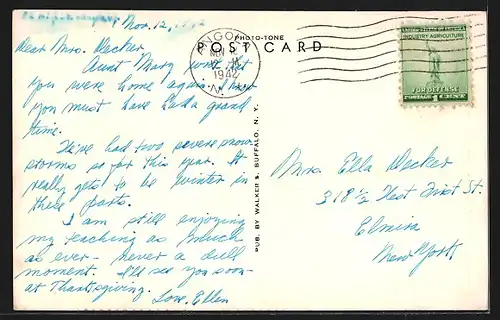 Nov. 12, 1942
Dear Mrs. Decker
Aunt Mary wrote that
you were home again. I know
you must have had a grand
time.
We've had two severe snow
storms so far this year. It
really gets to be winter in
these parts.
I am still enjoying
my teaching as much
as ever - never a dull
moment. I'll see you soon -
at Thanksgiving.
Love, Ellen
PHOTO-TONE
POST CARD
ANGOLA
NOV 12
1942
N.Y.
PUB. BY WALKER S. BUFFALO, N. Y.
UNITED STATES OF AMERICA
INDUSTRY AGRICULTURE
FOR DEFENSE
POSTAGE 1 CENT
Mrs Ella Decker
318 1/2 West First St.
Elmira
New York